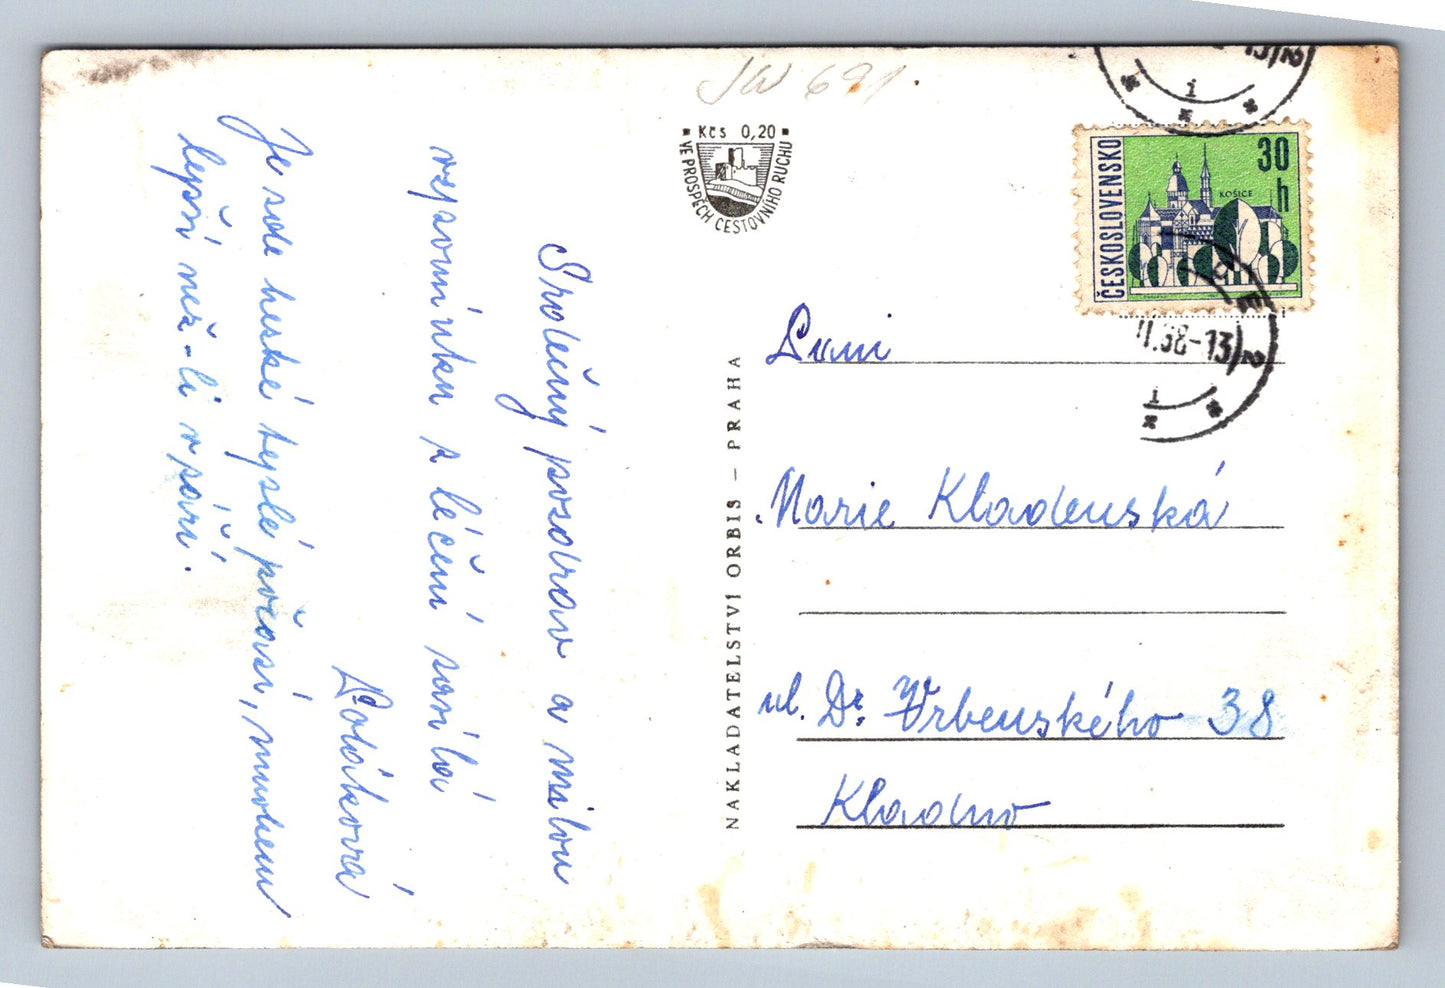 JW 691.
Kčs 0,20
VE PROSPĚCH CESTOVNÍHO RUCHU
ČESKOSLOVENSKO
30
h
KOŠICE
13
2
1
II.68-13
2
1
Srdečný pozdrav a milou
vzpomínku z léčení zasílá
Je zde hezké teplé počasí, mnohem
lepší než-li v září.
NAKLADATELSTVÍ ORBIS – PRAHA
Paní
Marie Kladenská
ul. Dr. Vrbenského 38
Kladno